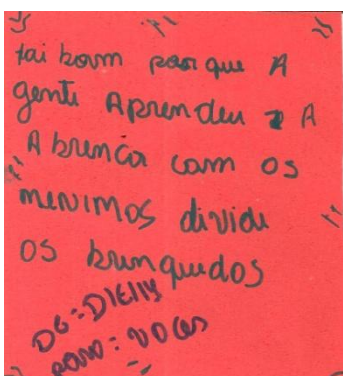 fai bom porque A
gente Aprendeu A
A brincar com os
menimos divide
os brinquedos
DE: DIELLY
para: voces